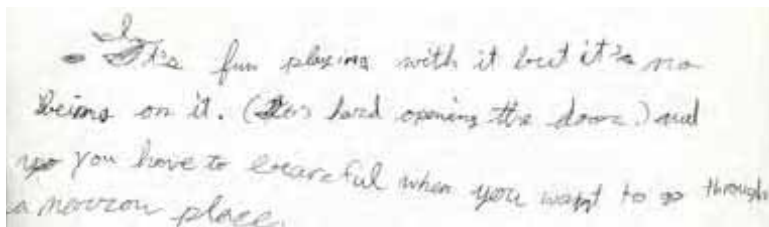 It's fun playing with it but it's no
being on it. (It's hard opening the door.) and
you have to be careful when you want to go through
a narrow place.